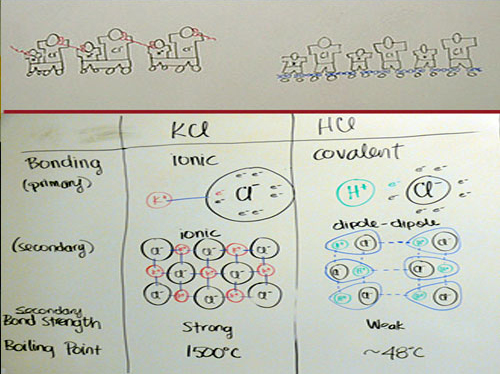 KCl HCl
Bonding ionic covalent
(primary)
K+ Cl- H+ Cl-
e- e- e- e- e- e- e- e-
(secondary) ionic dipole-dipole
Cl- Cl- Cl-
Cl- Cl-
Cl- Cl- Cl-
secondary
Bond Strength Strong Weak
Boiling Point 1500°C ~48°C